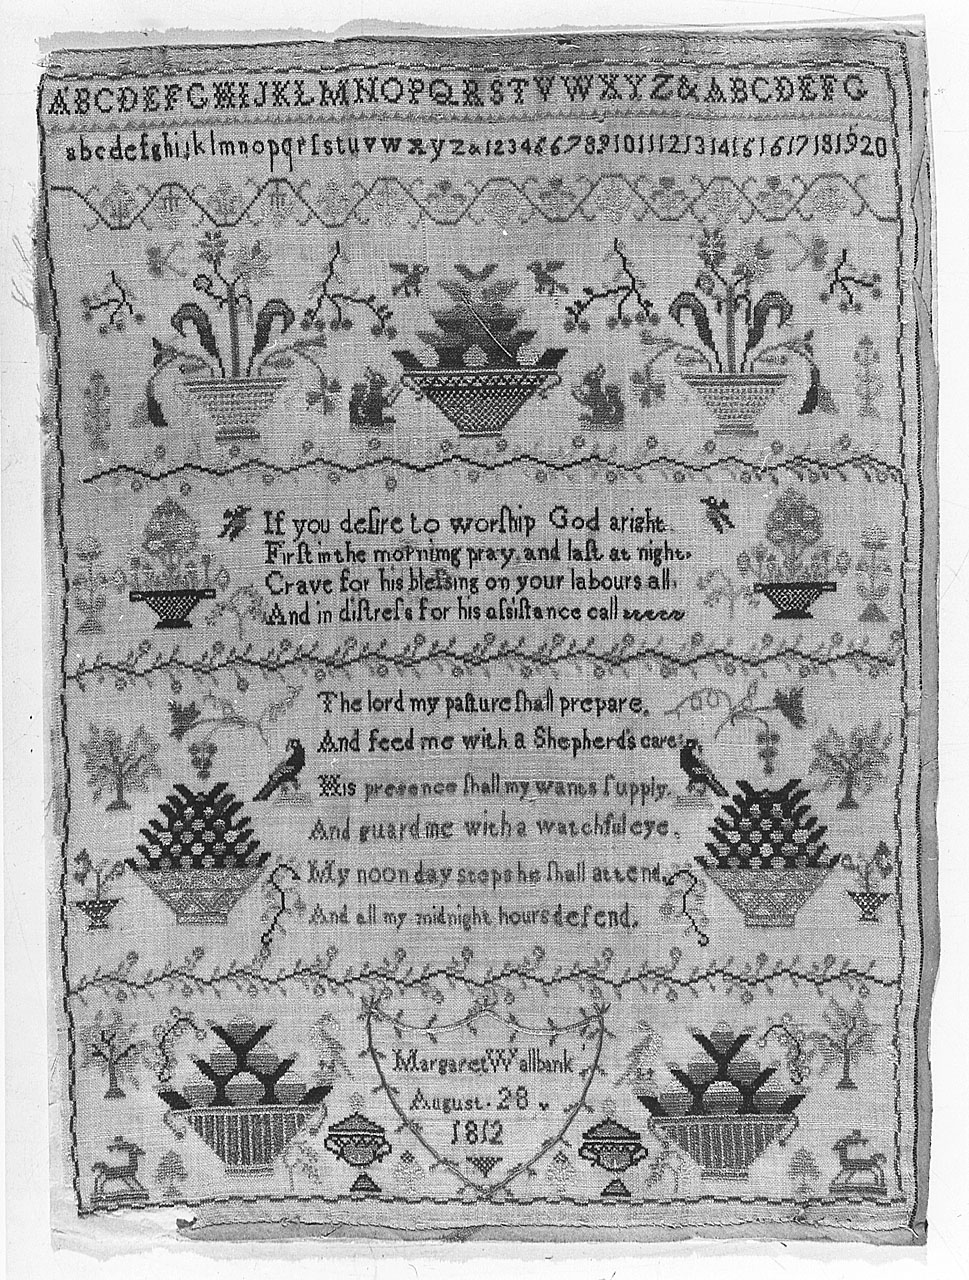 ABCDEFGHIJKLMNOPQRSTVWXYZ&ABCDEFG
abcdefghijklmnopqrſstuvwxyz&1234567891011121314151617181920
If you deſire to worſhip God aright.
Firſt in the morning pray and laſt at night.
Crave for his bleſsing on your labours all.
And in diſtreſs for his aſsiſtance call
The lord my paſture ſhall prepare.
And feed me with a Shepherd's care
His presence ſhall my wants ſupply.
And guard me with a watchful eye.
My noon day steps he ſhall attend.
And all my midnight hours defend.
Margaret Wallbank
August. 28
1812